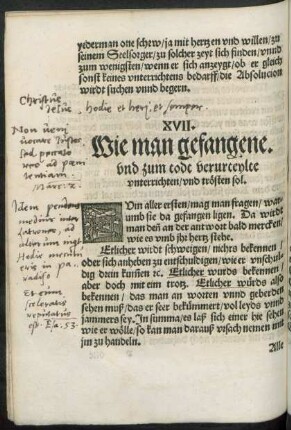 yederman one schew/ja mit hertzen vnd willen/zu
seinem Seelsorger/zu solcher zeyt sich finden/vnnd
zum wenigsten/wenn er sich anzeygt/ob er gleich
sonst keines vnterrichtens bedarff/die Absolucion
wirdt suchen vnnd begern.
Christus
Jesus, hodie et heri, et semper.
XVII.
Wie man gefangene.
vnd zum tode verurteylte
vnterrichten/vnd trösten sol.
Non veni
vocare Justos
sed peccatores
ad pœni
tentiam.
Marc: 2.
ZVm aller ersten/mag man fragen/war-
umb sie da gefangen ligen. Da wirdt
man deß an der antwort bald mercken/
wie es vmb jhr hertz stehe.
Idem pendens
medius inter
latrones, ad
alterum inquit
Hodie mecum
eris in pa-
radiso.
Etlicher wirdt schweigen/nichts bekennen/
oder sich anheben zu entschuldigen/wie er vnschul-
dig drein kumen ꝛc. Etlicher wurdts bekennen/
aber doch mit eim trotz. Etlicher würds also
bekennen/das man an worten vnnd geberden
sehen muß/das er seer bekümmert/vol leyds vnnd
jammers sey. In summa/es laß sich einer hie sehen
wie er wölle/so kan man darauß vrsach nemen mit
jm zu handeln.
Et cum
sceleratis
reputatus
est. Esa. 53.
Alle